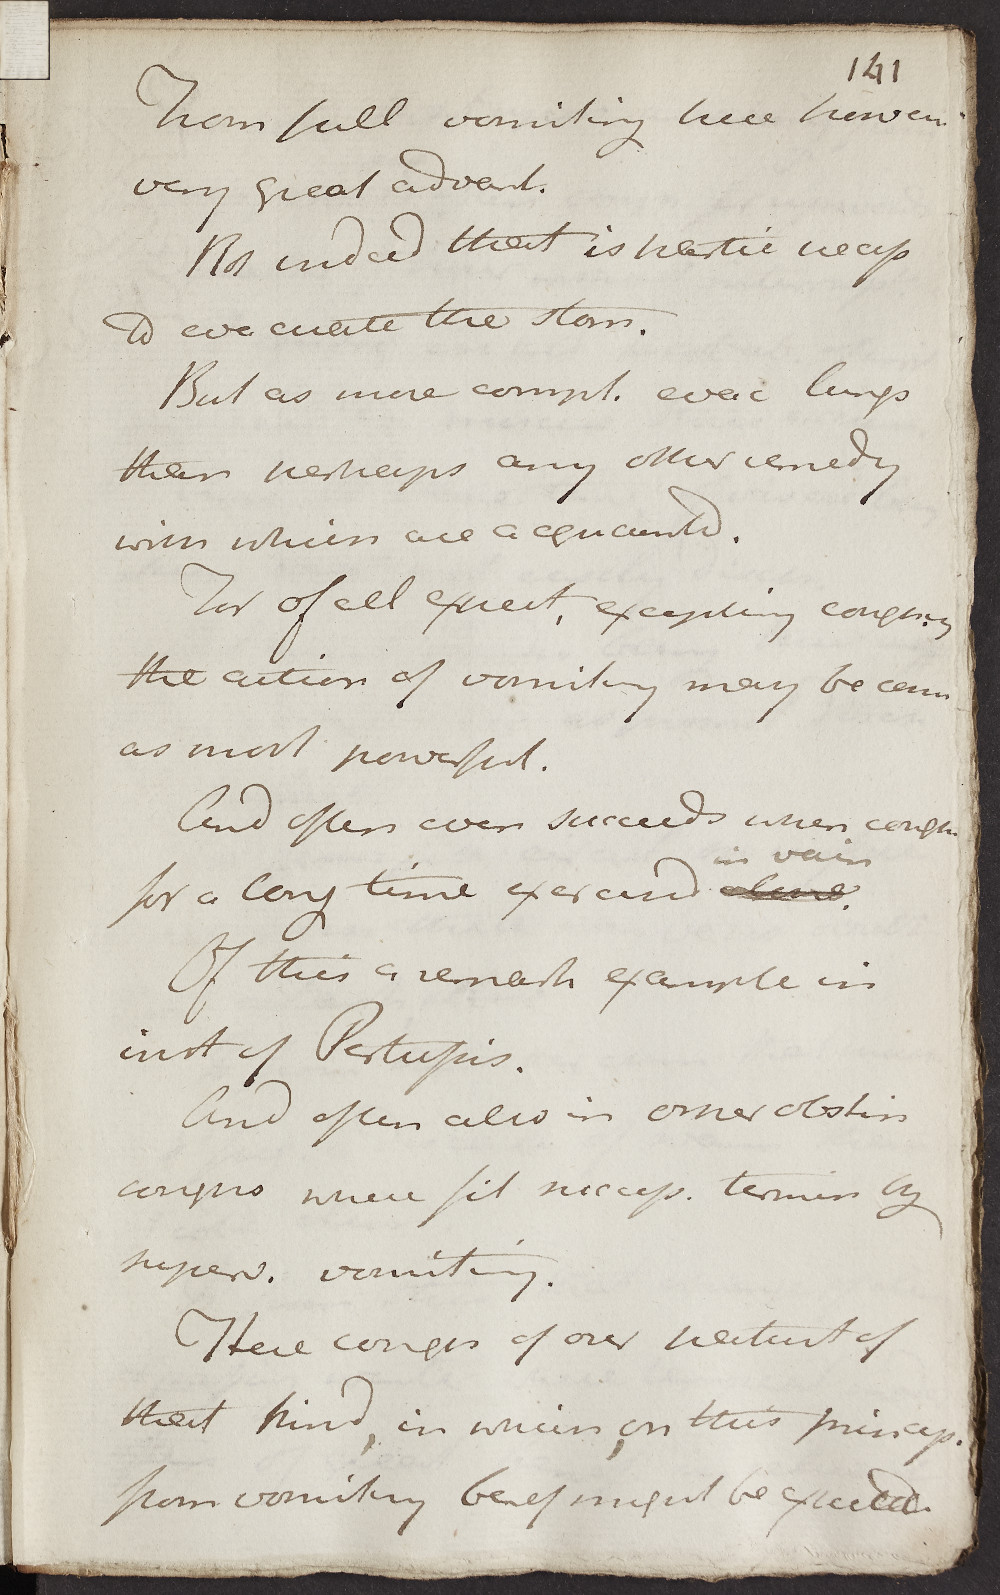 141
From full vomiting here however
very great advant.
Not indeed that is partic necess
to evacuate the stom.
But as more compl. evac lungs
than perhaps any other remedy
with which are acquainted.
For of all expect, excepting coughing
the action of vomiting may be consid
as most powerful.
And often even succeeds when cough
for a long time exercised in vain
Of this a remark example in
inst of Pertussis.
And often also in other obstin
coughs where fit necess. termin by
superv. vomiting.
Here cough of our patient of
that kind, in which, on this princip.
from vomiting benef might be expected.